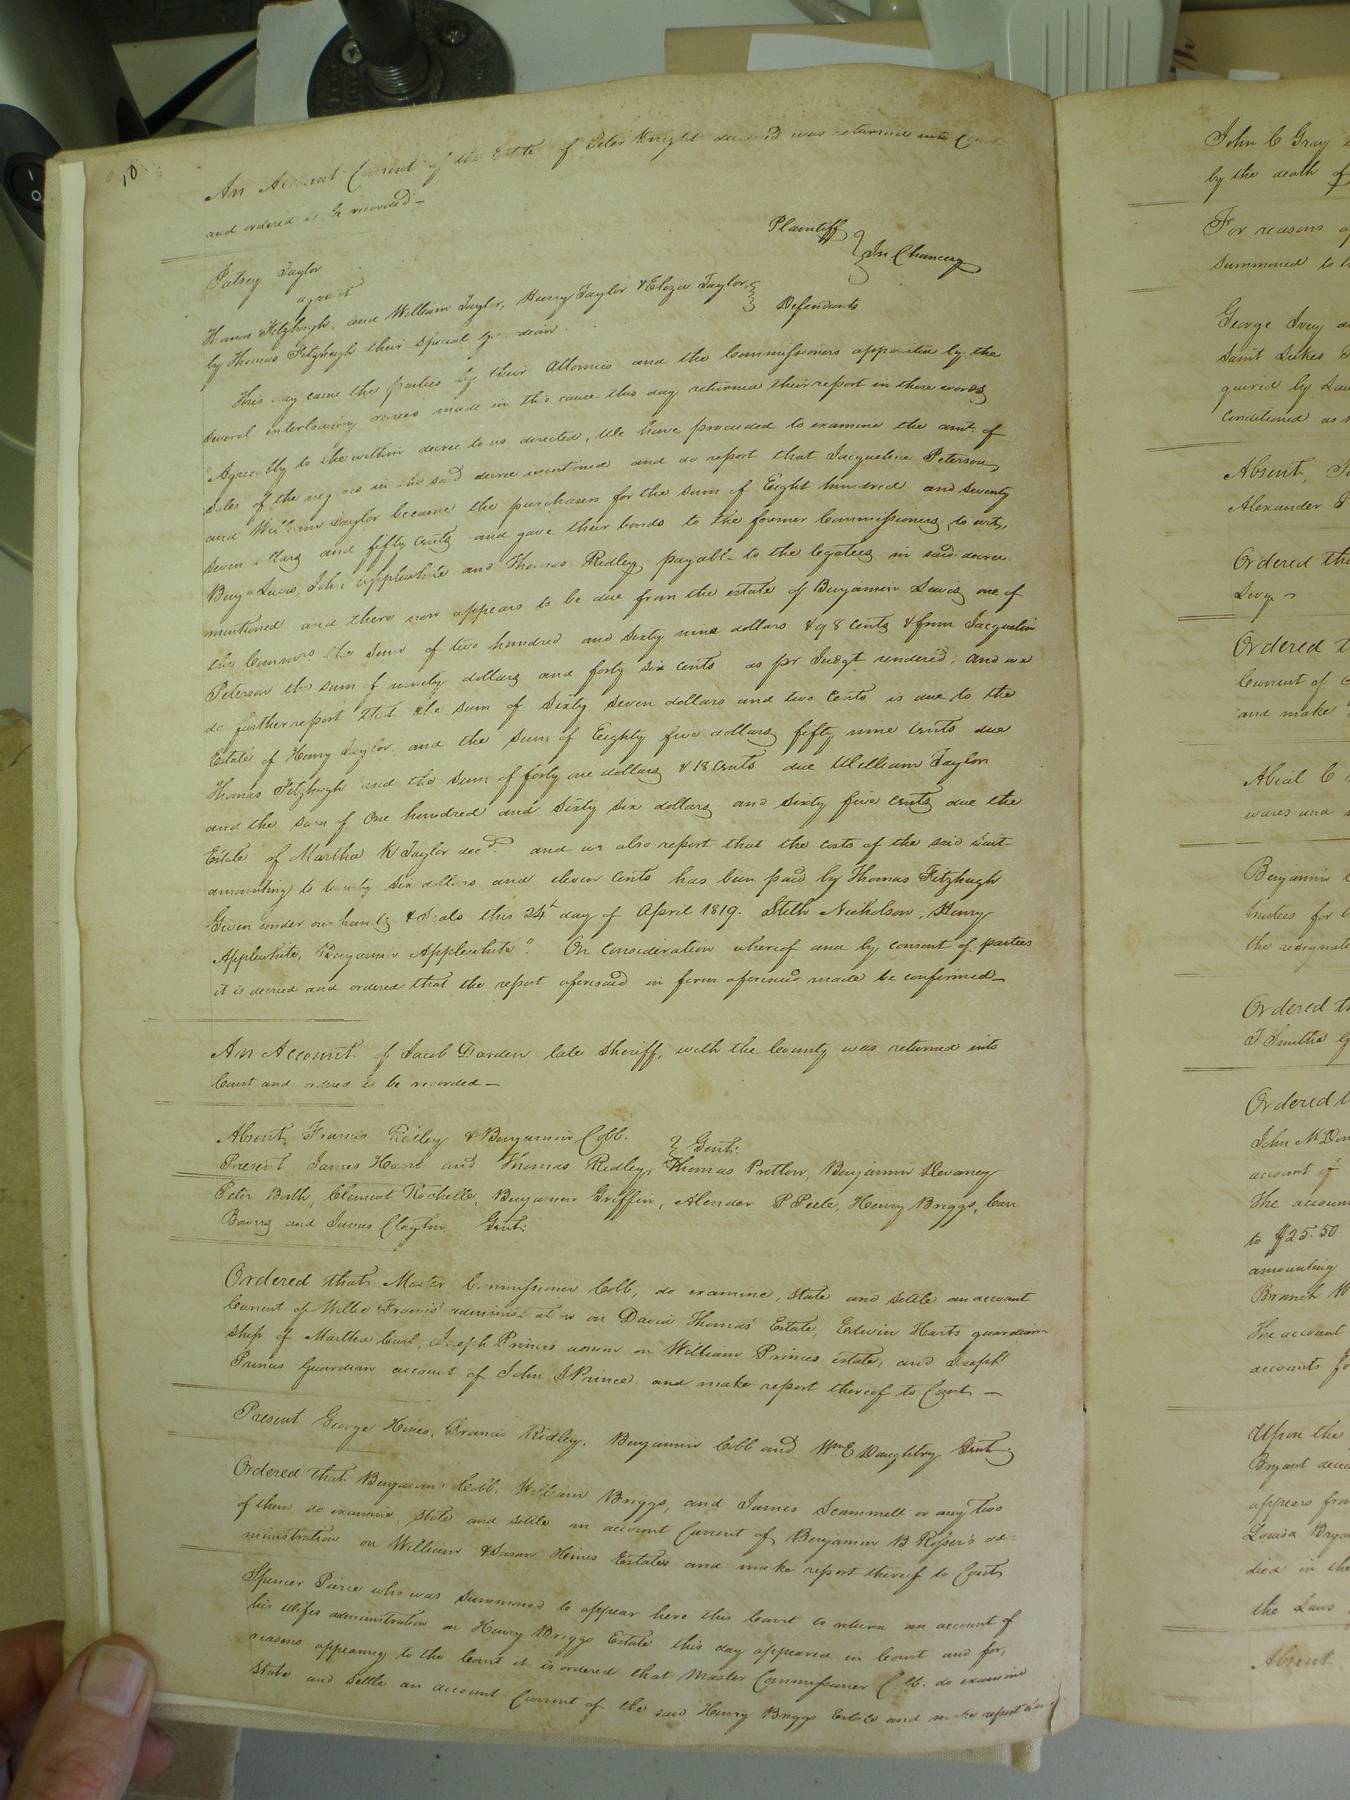 10
An Account Current of the Estate of Peter Knight deceased was returned into Court
and ordered to be recorded
Patsey Taylor Plaintiff
against } In Chancery
Thomas Fitzhugh, and William Taylor, Henry Taylor & Eliza Taylor,
by Thomas Fitzhugh their Special guardian. } Defendants
This day came the parties by their Attornies and the Commissioners appointed by the
several interlocutory decrees made in this cause this day returned their report in these words
"Agreeably to the within decree to us directed, We have proceeded to examine the amt. of
sales of the negroes in the said decree mentioned and do report that Jacqueline Peterson
and William Taylor became the purchasers for the sum of Eight hundred and seventy
seven dollars and fifty cents and gave their bonds to the former Commissioners, to wit,
Benja Lewis, John Applewhite and Thomas Ridley payable to the legatees in said decree
mentioned and there now appears to be due from the estate of Benjamin Lewis one of
the Commrs. the sum of two hundred and sixty nine dollars & 98 cents & from Jacquelin
Peterson the sum of ninety dollars and forty six cents as pr Judgt rendered; and we
do further report that the sum of Sixty seven dollars and two Cents is due to the
Estate of Henry Taylor, and the sum of Eighty five dollars fifty nine cents due
Thomas Fitzhugh and the sum of forty one dollars & 18 Cents due William Taylor
and the sum of One hundred and sixty six dollars and sixty five cents due the
Estate of Martha K Taylor decd. and we also report that the costs of the said suit
amounting to twenty six dollars and eleven cents has been paid by Thomas Fitzhugh
Given under our hands & Seals this 24t day of April 1819. Stith Nicholson, Henry
Applewhite, Benjamin Applewhite". On consideration whereof and by consent of parties
it is decreed and ordered that the report aforesaid in form aforesaid made be confirmed
An Account of Jacob Darden late Sheriff, with the County was returned into
Court and ordered to be recorded
Absent, Francis Ridley & Benjamin Cobb. } Gent.
Present, James Hart and Thomas Ridley, Thomas Pretlow, Benjamin Devaney
Peter Booth, Clement Rochelle, Benjamin Griffin, Alexander P Peete, Henry Briggs, Carr
Bowers and James Clayton Gent.
Ordered that Master Commissioner Cobb, do examine, state and settle an account
Current of Willie Francis' administration on David Thomas' Estate, Edwin Harts guardian
ship of Martha Crul, Joseph Princes admn on William Princes estate, and Joseph
Princes Guardian account of John J Prince and make report thereof to Court
Present George Hines, Francis Ridley, Benjamin Cobb and Wm. E Daughtry Gent.
Ordered that Benjamin Cobb, William Briggs, and James Scammell or any two
of them do examine, state and settle an account Current of Benjamin B Rosser's ad=
ministration on William & Susan Hines Estates and make report thereof to Court
Spencer Pierce who was summoned to appear here this Court to return an account of
his Wifes administration on Henry Briggs Estate this day appeared in Court and for,
reasons appearing to the Court it is ordered that Master Commissioner Cobb. do examine
State and Settle an account Current of the said Henry Briggs Estate and make report
John C Gray
by the death of
For reasons
summoned to
George Ivey
Saint Lukes
quired by Law
conditioned as
Absent,
Alexander P
Ordered tha
Levy
Ordered
Current of
and make
Abial C
wares and
Benjamin
trustees for
the resignat
Ordered th
T Smiths
Ordered
John McDon
account of
The account
to $25.50
amounting
Branch W
The account
accounts fo
Upon the
Bryant decea
appears from
Louisa Brya
died in the
the Laws
Absent